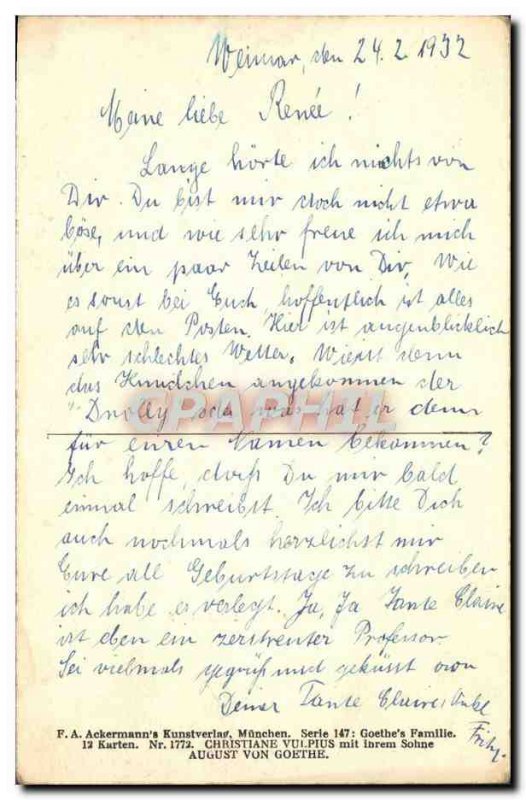 Weimar, den 24.2.1932
Meine liebe Renée!
Lange hörte ich nichts von
Dir. Du bist mir doch nicht etwa
böse, und wie sehr freue ich mich
über ein paar Zeilen von Dir, Wie
es sonst bei Euch, hoffentlich ist alles
auf den Posten. Hier ist augenblicklich
sehr schlechtes Wetter. denn
das Hündchen angekommen der
"Drolly" oder was hat er denn
für einen Namen bekommen?
Ich hoffe, daß Du mir bald
einmal schreibst. Ich bitte Dich
auch nochmals herzlichst mir
Eure all Geburtstage zu schreiben
ich habe es verlegt. Ja, Ja Tante Claire
ist eben ein zerstreuter Professor.
Sei vielmals gegrüß und geküsst von
Deiner Tante Claire, Onkel
Fritz.
CPAPHIL
F. A. Ackermann's Kunstverlag, München. Serie 147: Goethe's Familie.
12 Karten. Nr. 1772. CHRISTIANE VULPIUS mit ihrem Sohne
AUGUST VON GOETHE.